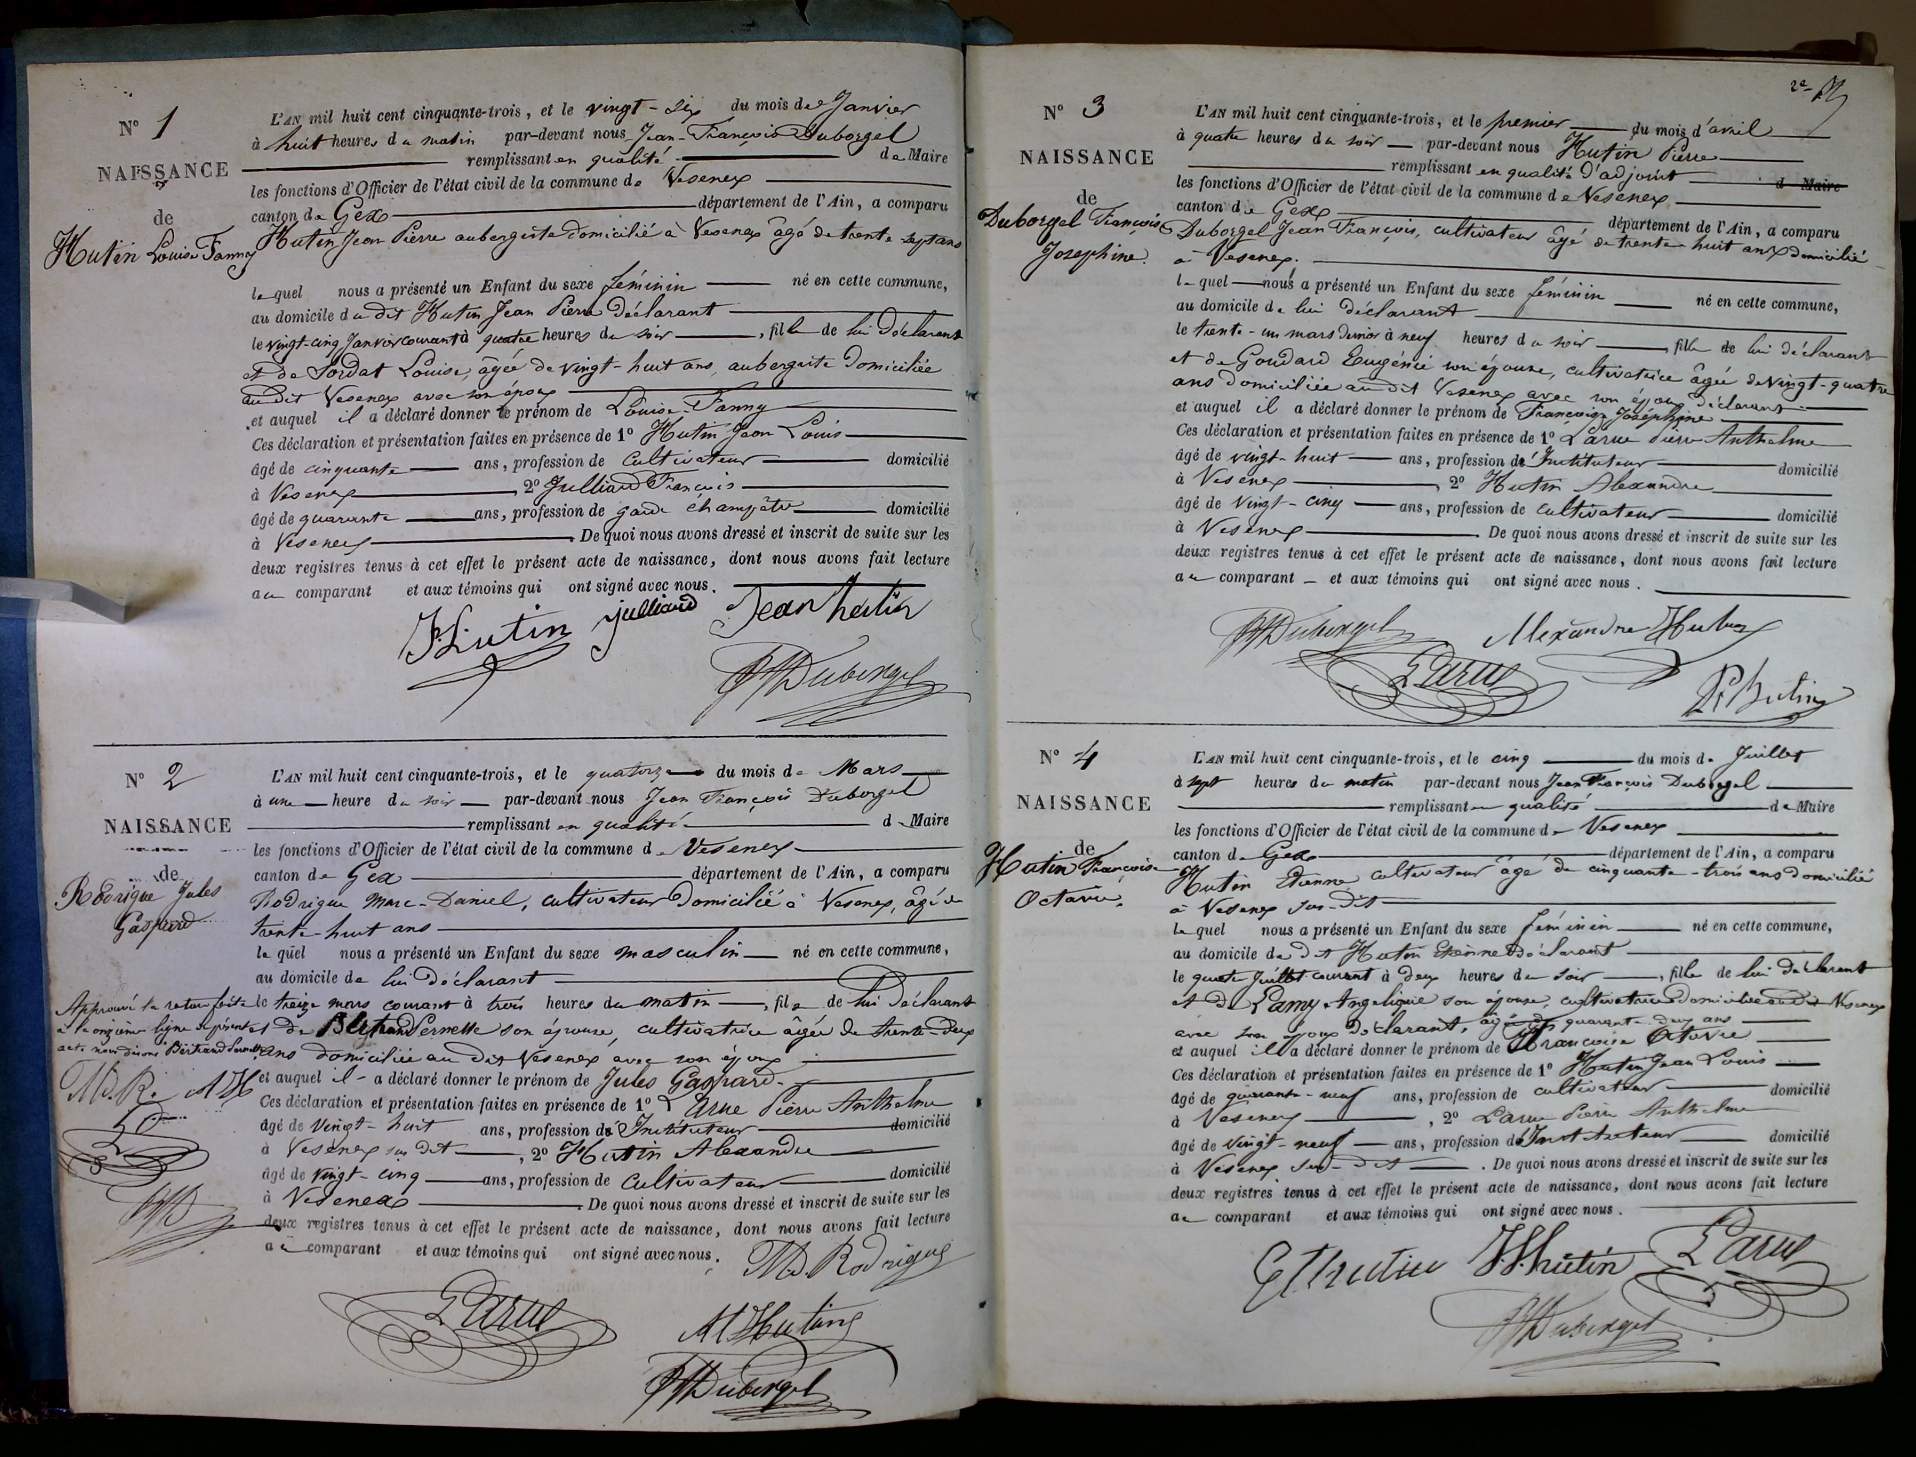 N° 1
NAISSANCE
de
Hutin Louise Fanny
L'AN mil huit cent cinquante-trois, et le vingt-six du mois de Janvier
à huit heures du matin par-devant nous Jean-François Duborgel
remplissant en qualité de Maire
les fonctions d'Officier de l'état civil de la commune de Vesenex
canton de Gex département de l'Ain, a comparu
Hutin Jean Pierre aubergiste domicilié à Vesenex âgé de trente-sept ans
lequel nous a présenté un Enfant du sexe féminin né en cette commune,
au domicile du dit Hutin Jean Pierre déclarant
le vingt-cinq Janvier courant à quatre heures du soir, fille de lui déclarant
et de Sordat Louise, âgée de vingt-huit ans, aubergiste domiciliée
au dit Vesenex avec son époux
et auquel il a déclaré donner le prénom de Louise-Fanny
Ces déclaration et présentation faites en présence de 1° Hutin Jean Louis
âgé de cinquante ans, profession de cultivateur domicilié
à Vesenex, 2° Julliard François
âgé de quarante ans, profession de garde champêtre domicilié
à Vesenex. De quoi nous avons dressé et inscrit de suite sur les
deux registres tenus à cet effet le présent acte de naissance, dont nous avons fait lecture
au comparant et aux témoins qui ont signé avec nous.
J. L. hutin julliard Jean hutin
JF Duborgel
N° 2
NAISSANCE
de
Rodrigue Jules
Gaspard
L'AN mil huit cent cinquante-trois, et le quatorze du mois de Mars
à une heure du soir par-devant nous Jean François Duborgel
remplissant en qualité de Maire
les fonctions d'Officier de l'état civil de la commune de Vesenex
canton de Gex département de l'Ain, a comparu
Rodrigue Marc-Daniel, cultivateur domicilié à Vesenex, âgé de
trente-huit ans
lequel nous a présenté un Enfant du sexe masculin né en cette commune,
au domicile de lui déclarant
le treize mars courant à trois heures du matin, fils de lui déclarant
et de Bertrand Pernette son épouse, cultivatrice âgée de trente-deux
ans domiciliée au dit Vesenex avec son époux
et auquel il a déclaré donner le prénom de Jules Gaspard.
Ces déclaration et présentation faites en présence de 1° Larue Pierre Anthelme
âgé de vingt-huit ans, profession d'Instituteur domicilié
à Vesenex sus dit, 2° Hutin Alexandre
âgé de vingt-cinq ans, profession de cultivateur domicilié
à Vesenex. De quoi nous avons dressé et inscrit de suite sur les
deux registres tenus à cet effet le présent acte de naissance, dont nous avons fait lecture
au comparant et aux témoins qui ont signé avec nous.
Approuvé la rature faite
à la onzième ligne du présent
acte nous disons Bertrand Pernette
M. R. A H
M. Rodrigue
Larue
Al Hutin
JF Duborgel
2e
N° 3
NAISSANCE
de
Duborgel François
Josephine.
L'AN mil huit cent cinquante-trois, et le premier du mois d'avril
à quatre heures du soir par-devant nous Hutin Pierre
remplissant en qualité d'adjoint de Maire
les fonctions d'Officier de l'état civil de la commune de Vesenex
canton de Gex département de l'Ain, a comparu
Duborgel Jean François, cultivateur âgé de trente-huit ans domicilié
à Vesenex.
lequel nous a présenté un Enfant du sexe féminin né en cette commune,
au domicile de lui déclarant
le trente-un mars dernier à neuf heures du soir, fille de lui déclarant
et de Goudard Eugénie son épouse, cultivatrice âgée de vingt-quatre
ans domiciliée au dit Vesenex avec son époux déclarant
et auquel il a déclaré donner le prénom de Françoise Joséphine
Ces déclaration et présentation faites en présence de 1° Larue Pierre Anthelme
âgé de vingt-huit ans, profession d'Instituteur domicilié
à Vesenex, 2° Hutin Alexandre
âgé de vingt-cinq ans, profession de cultivateur domicilié
à Vesenex. De quoi nous avons dressé et inscrit de suite sur les
deux registres tenus à cet effet le présent acte de naissance, dont nous avons fait lecture
au comparant et aux témoins qui ont signé avec nous.
JF Duborgel Alexandre Hutin
Larue
P. Hutin
N° 4
NAISSANCE
de
Hutin Françoise
Octavie.
L'AN mil huit cent cinquante-trois, et le cinq du mois de Juillet
à sept heures du matin par-devant nous Jean François Duborgel
remplissant en qualité de Maire
les fonctions d'Officier de l'état civil de la commune de Vesenex
canton de Gex département de l'Ain, a comparu
Hutin Etienne cultivateur âgé de cinquante-trois ans domicilié
à Vesenex sus-dit
lequel nous a présenté un Enfant du sexe féminin né en cette commune,
au domicile du dit Hutin Etienne déclarant
le quatre Juillet courant à deux heures du soir, fille de lui déclarant
et de Lamy Angelique son épouse, cultivatrice domiciliée au dit Vesenex
avec son époux déclarant, âgée de quarante-deux ans
et auquel il a déclaré donner le prénom de Françoise Octavie
Ces déclaration et présentation faites en présence de 1° Hutin Jean Louis
âgé de quarante-neuf ans, profession de cultivateur domicilié
à Vesenex, 2° Larue Pierre Anthelme
âgé de vingt-neuf ans, profession d'Instituteur domicilié
à Vesenex sus-dit. De quoi nous avons dressé et inscrit de suite sur les
deux registres tenus à cet effet le présent acte de naissance, dont nous avons fait lecture
au comparant et aux témoins qui ont signé avec nous.
Et hutin J. L. hutin Larue
JF Duborgel